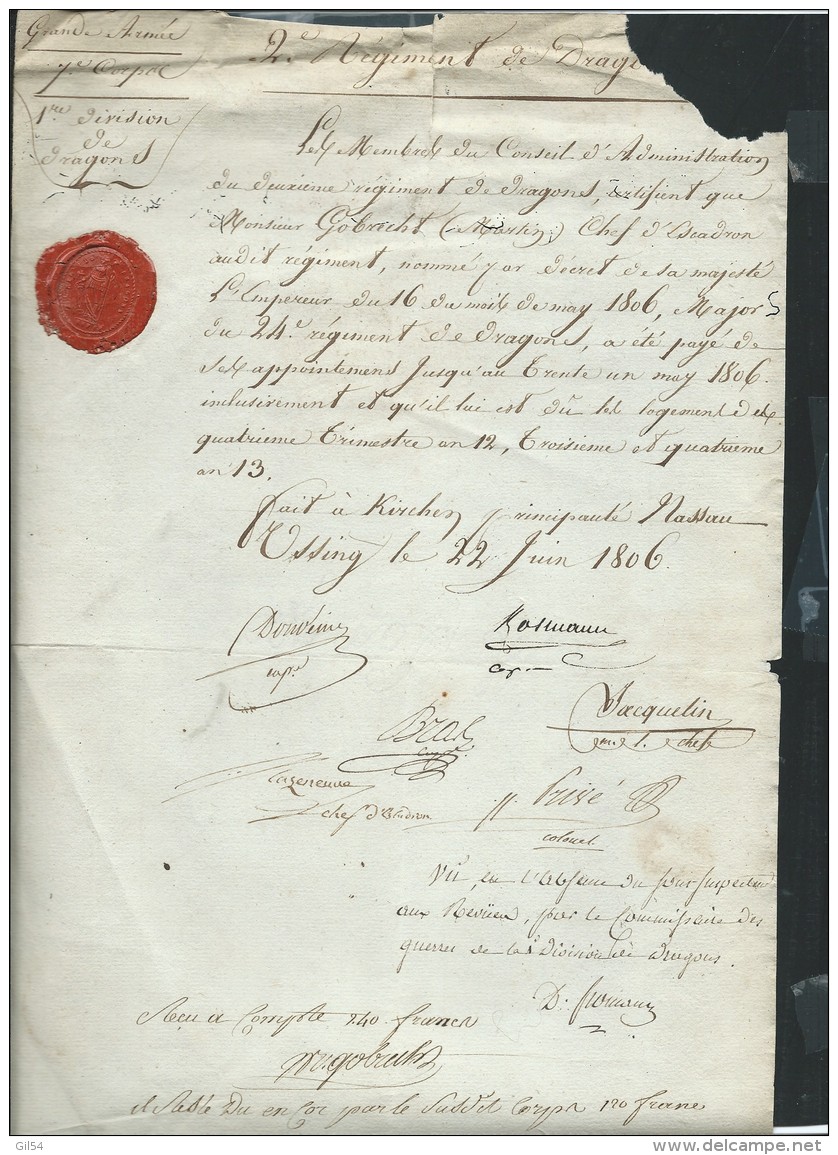 Grande Armée
7.e Corps
1.re division
de
dragons
2.e Régiment de Drago
Les Membres du Conseil d'Administration
du deuxième régiment de dragons, certifient que
Monsieur Gobrecht (Martin) Chef d'Escadron
audit régiment, nommé par décret de sa majesté
L'Empereur du 16 du mois de may 1806, Major
du 24.e régiment de dragons, a été payé de
ses appointemens Jusqu'au trente un may 1806.
inclusivement et qu'il lui est dû les logements des
quatrième trimestre an 12, troisième et quatrième
an 13.
fait à Kirchen principauté Nassau
Ussing le 22 Juin 1806.
cap.e
Kosmann
cap.
Jacquelin
m. l. chefs
Bral
Cazeneuve
chef d'Escadron
Privé
colonel
Vû, en l'absence du sous-inspecteur
aux Revües, par le Commissaire des
guerres de la 1.e Division de dragons.
Reçu a Compte 240 francs
M. gobrecht
il Reste Du en Cor par le Susdit Corps 120 francs
Gil54
www.delcampe.net